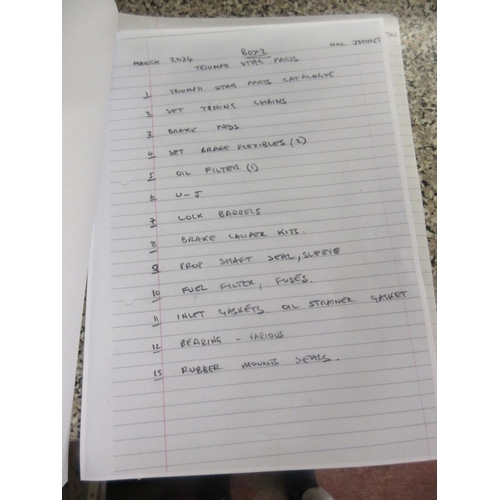 MARCH 2024 BOX 2
TRIUMPH STAG PARTS
1 TRIUMPH STAG PARTS CATALOGUE
2 SET TIMING CHAINS
3 BRAKE PADS
4 SET BRAKE FLEXIBLES (2)
5 OIL FILTER (1)
6 U-J
7 LOCK BARRELS
8 BRAKE CALIPER KITS.
9 PROP SHAFT SEAL, SLEEVE
10 FUEL FILTER, FUSES.
11 INLET GASKETS OIL STRAINER GASKET
12 BEARING - VARIOUS
13 RUBBER MOUNTS SEALS.